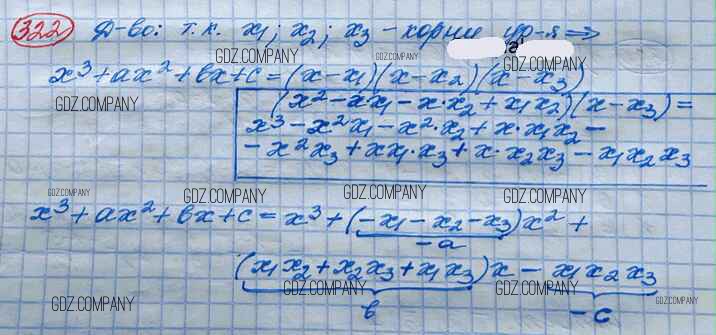 322 Д-во: т.к. x₁; x₂; x₃ - корни ур-я ⇒
GDZ.COMPANY GDZ.COMPANY
x³+ax²+bx+c=(x-x₁)(x-x₂)(x-x₃)
GDZ.COMPANY GDZ.COMPANY GDZ.COMPANY
(x²-xx₁-x·x₂+x₁x₂)(x-x₃)=
x³-x²x₁-x²·x₂+x·x₁x₂-
-x²x₃+xx₁·x₃+x·x₂x₃-x₁x₂x₃
GDZ.COMPANY GDZ.COMPANY GDZ.COMPANY GDZ.COMPANY
x³+ax²+bx+c=x³+(-x₁-x₂-x₃)x²+
-a
(x₁x₂+x₂x₃+x₁x₃)x-x₁x₂x₃
GDZ.COMPANY GDZ.COMPANY GDZ.COMPANY GDZ.COMPANY
b -c